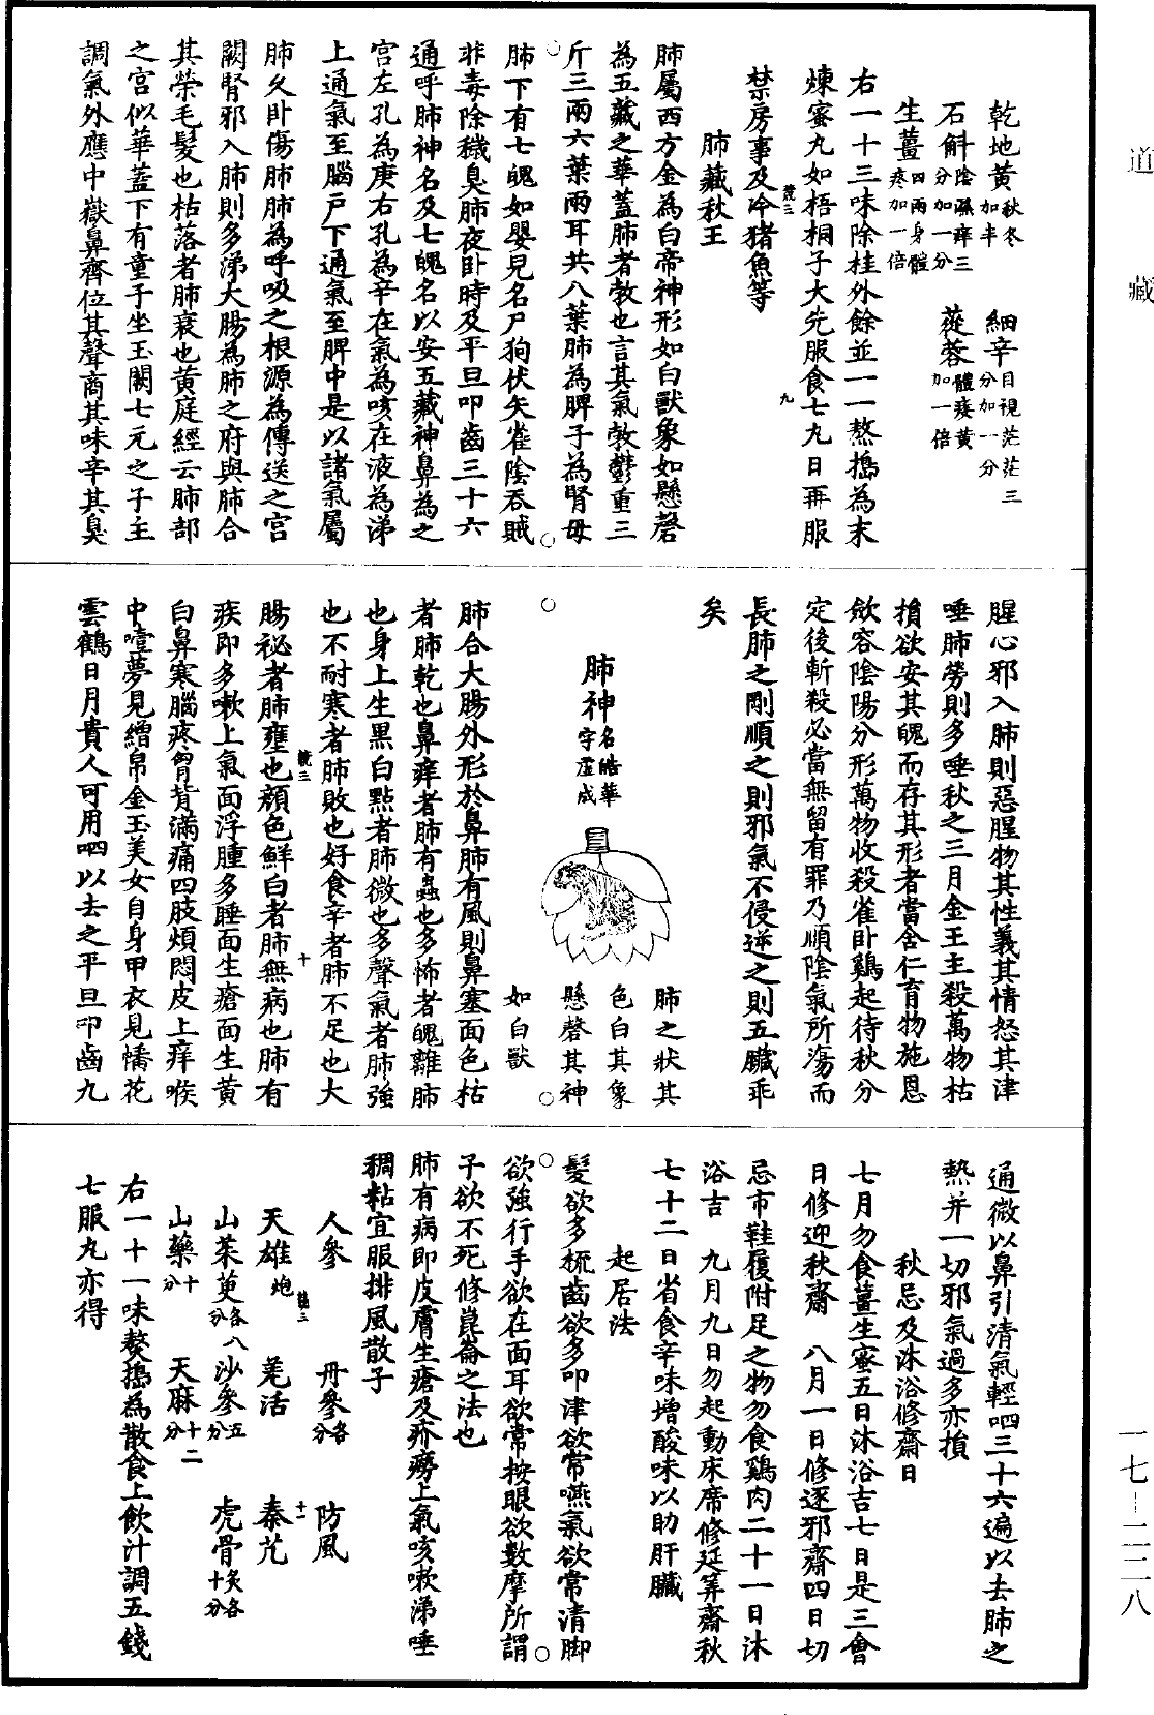 道藏
乾地黃秋冬加半　細辛目視茫茫三分加一分
石斛陰濕癢三分加一分　蓯蓉體痿黃加一倍
生薑四兩身體疼加一倍
右一十三味除桂外餘並一一熬搗為末
煉蜜丸如梧桐子大先服食七九日再服
禁房事及冷猪魚等
肺藏秋王
肺屬西方金為白帝神形如白獸象如懸磬
為五藏之華蓋肺者敦也言其氣敦鬱重三
斤三兩六葉兩耳共八葉肺為脾子為腎母
肺下有七魄如嬰兒名尸狗伏矢雀陰吞賊
非毒除穢臭肺夜臥時及平旦叩齒三十六
通呼肺神名及七魄名以安五藏神鼻為之
宮左孔為庚右孔為辛在氣為咳在液為涕
上通氣至腦戶下通氣至脾中是以諸氣屬
肺久臥傷肺肺為呼吸之根源為傳送之宮
闕腎邪入肺則多涕大腸為肺之府與肺合
其榮毛髮也枯落者肺衰也黃庭經云肺部
之宮似華蓋下有童子坐玉闕七元之子主
調氣外應中嶽鼻齊位其聲商其味辛其臭
腥心邪入肺則惡腥物其性義其情怒其津
唾肺勞則多唾秋之三月金王主殺萬物枯
損欲安其魄而存其形者當舍仁育物施恩
斂容陰陽分形萬物收殺雀臥鷄起待秋分
定後斬殺必當無留有罪乃順陰氣所蕩而
長肺之剛順之則邪氣不侵逆之則五臟乖
矣
肺神名皓華字虛成
肺之狀其
色白其象
懸磬其神
如白獸
肺合大腸外形於鼻肺有風則鼻塞面色枯
者肺乾也鼻痒者肺有蟲也多怖者魄離肺
也身上生黑白點者肺微也多聲氣者肺強
也不耐寒者肺敗也好食辛者肺不足也大
腸祕者肺壅也顏色鮮白者肺無病也肺有
疾即多嗽上氣面浮腫多睡面生瘡面生黃
白鼻寒腦疼胷背滿痛四肢煩悶皮上痒喉
中噎夢見繒帛金玉美女自身甲衣見幡花
雲鶴日月貴人可用呬以去之平旦叩齒九
通微以鼻引清氣輕呬三十六遍以去肺之
熱并一切邪氣過多亦損
秋忌及沐浴修齋日
七月勿食薑生蜜五日沐浴吉七日是三會
日修迎秋齋　八月一日修逐邪齋四日切
忌市鞋履附足之物勿食鷄肉二十一日沐
浴吉　九月九日勿起動床席修延筭齋秋
七十二日省食辛味增酸味以助肝臟
起居法
髮欲多梳齒欲多叩津欲常嚥氣欲常清脚
欲強行手欲在面耳欲常按眼欲數摩所謂
子欲不死修崑崙之法也
肺有病即皮膚生瘡及疥癆上氣咳嗽涕唾
稠粘宜服排風散子
人參　丹參各分　防風
天雄炮　羌活　秦艽
山茱萸各八分　沙參五分　虎骨炙各十分
山藥十分　天麻十二分
右一十一味𤎅搗為散食上飲汁調五錢
七服丸亦得
一七—二二八